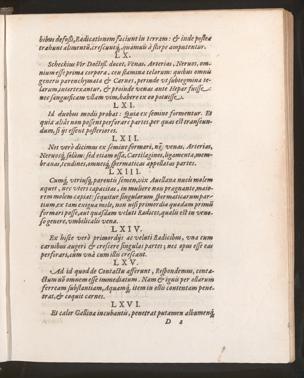 bibus defosso, Radicationem faciunt in terram: & inde postea
trahunt alimentũ, crescuntq́; quamuis à stirpe amputentur.
LX.
Scheckius Vir Doctiss. docet, Venas, Arterias, Neruos, om-
nium esse prima corpora, ceu stamina telarum: quibus omne
generis parenchymata & Carnes, perinde vt subtegmina te-
larum, intertexantur, & proinde venas ante Hepar fuisse,
nec sanguificam vllam vim, habere ex eo potuisse.
LXI.
Id duobus modis probat: Quia ex semine formentur. Et
quia aliàs non possent perforare partes, per quas est transeun-
dum, si ijs essent posteriores.
LXII.
Nec verò dicimus ex semine formari, venas, Arterias,
Neruosq́; solùm: sed etiam ossa, Cartilagines, ligamenta, mem-
branas, tendines, omnesq́; spermaticas appellatas partes.
LXIII.
Cumq́; vtriusq́; parentis semen, vix Auellanæ nucis molem
æquet, nec vires capacitas, in muliere non prægnante, maio-
rem molem capiat: sequitur singularum spermaticarum par-
tium ex tam exigua mole, non nisi primordia quædam primũ
formari posse, aut quasdam veluti Radices, qualis est in veno-
so genere, vmbilicalis vena.
LXIV.
Ex hisce verò primordijs ac veluti Radicibus, vnà cum
carnibus augeri & crescere singulas partes; nec opus esse eas
perforari, cùm vnà cum illis crescant.
LXV.
Ad id quod de Contactu afferunt, Respondemus, conta-
ctum nõ omnem esse immediatum. Nam & ignis per ollarum
ferream substantiam, Aquamq́;, item in ollis contentam pene-
trat, & coquit carnes.
LXVI.
Et calor Gallinæ incubantis, penetrat putamen albumenq́;
D 2